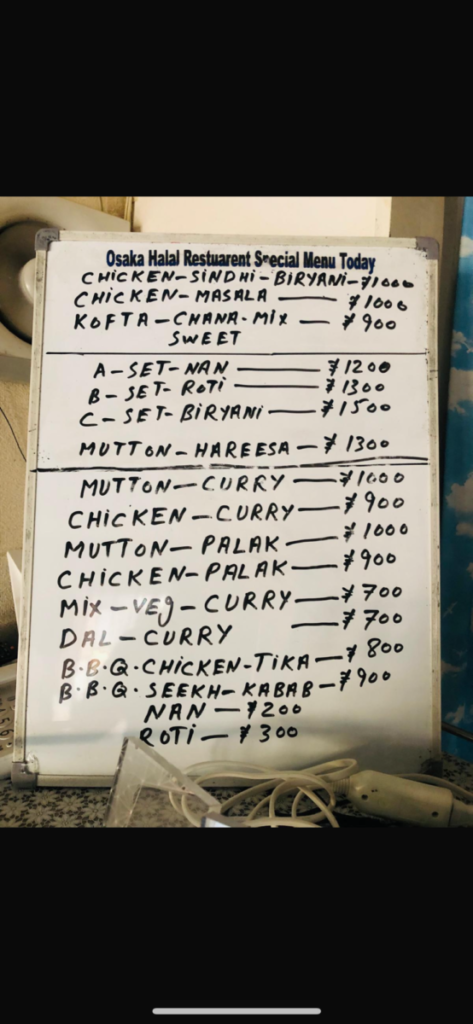 Osaka Halal Restuarent Special Menu Today
CHiCKEN-SiNDHi-BiRYANi-¥1000
CHiCKEN-MASALA — ¥1000
KOFTA-CHANA-Mix — ¥900
SWEET
A-SET-NAN — ¥1200
B-SET-ROTi — ¥1300
C-SET-BiRYANi — ¥1500
MUTTON-HAREESA-¥1300
MUTTON-CURRY — ¥1000
CHiCKEN-CURRY — ¥900
MUTTON-PALAK — ¥1000
CHiCKEN-PALAK — ¥900
Mix-VEg-CURRY — ¥700
DAL-CURRY — ¥700
B.B.Q.CHiCKEN-TiKA-¥800
B.B.Q.SEEKH-KABAB-¥900
NAN-¥200
ROTi-¥300